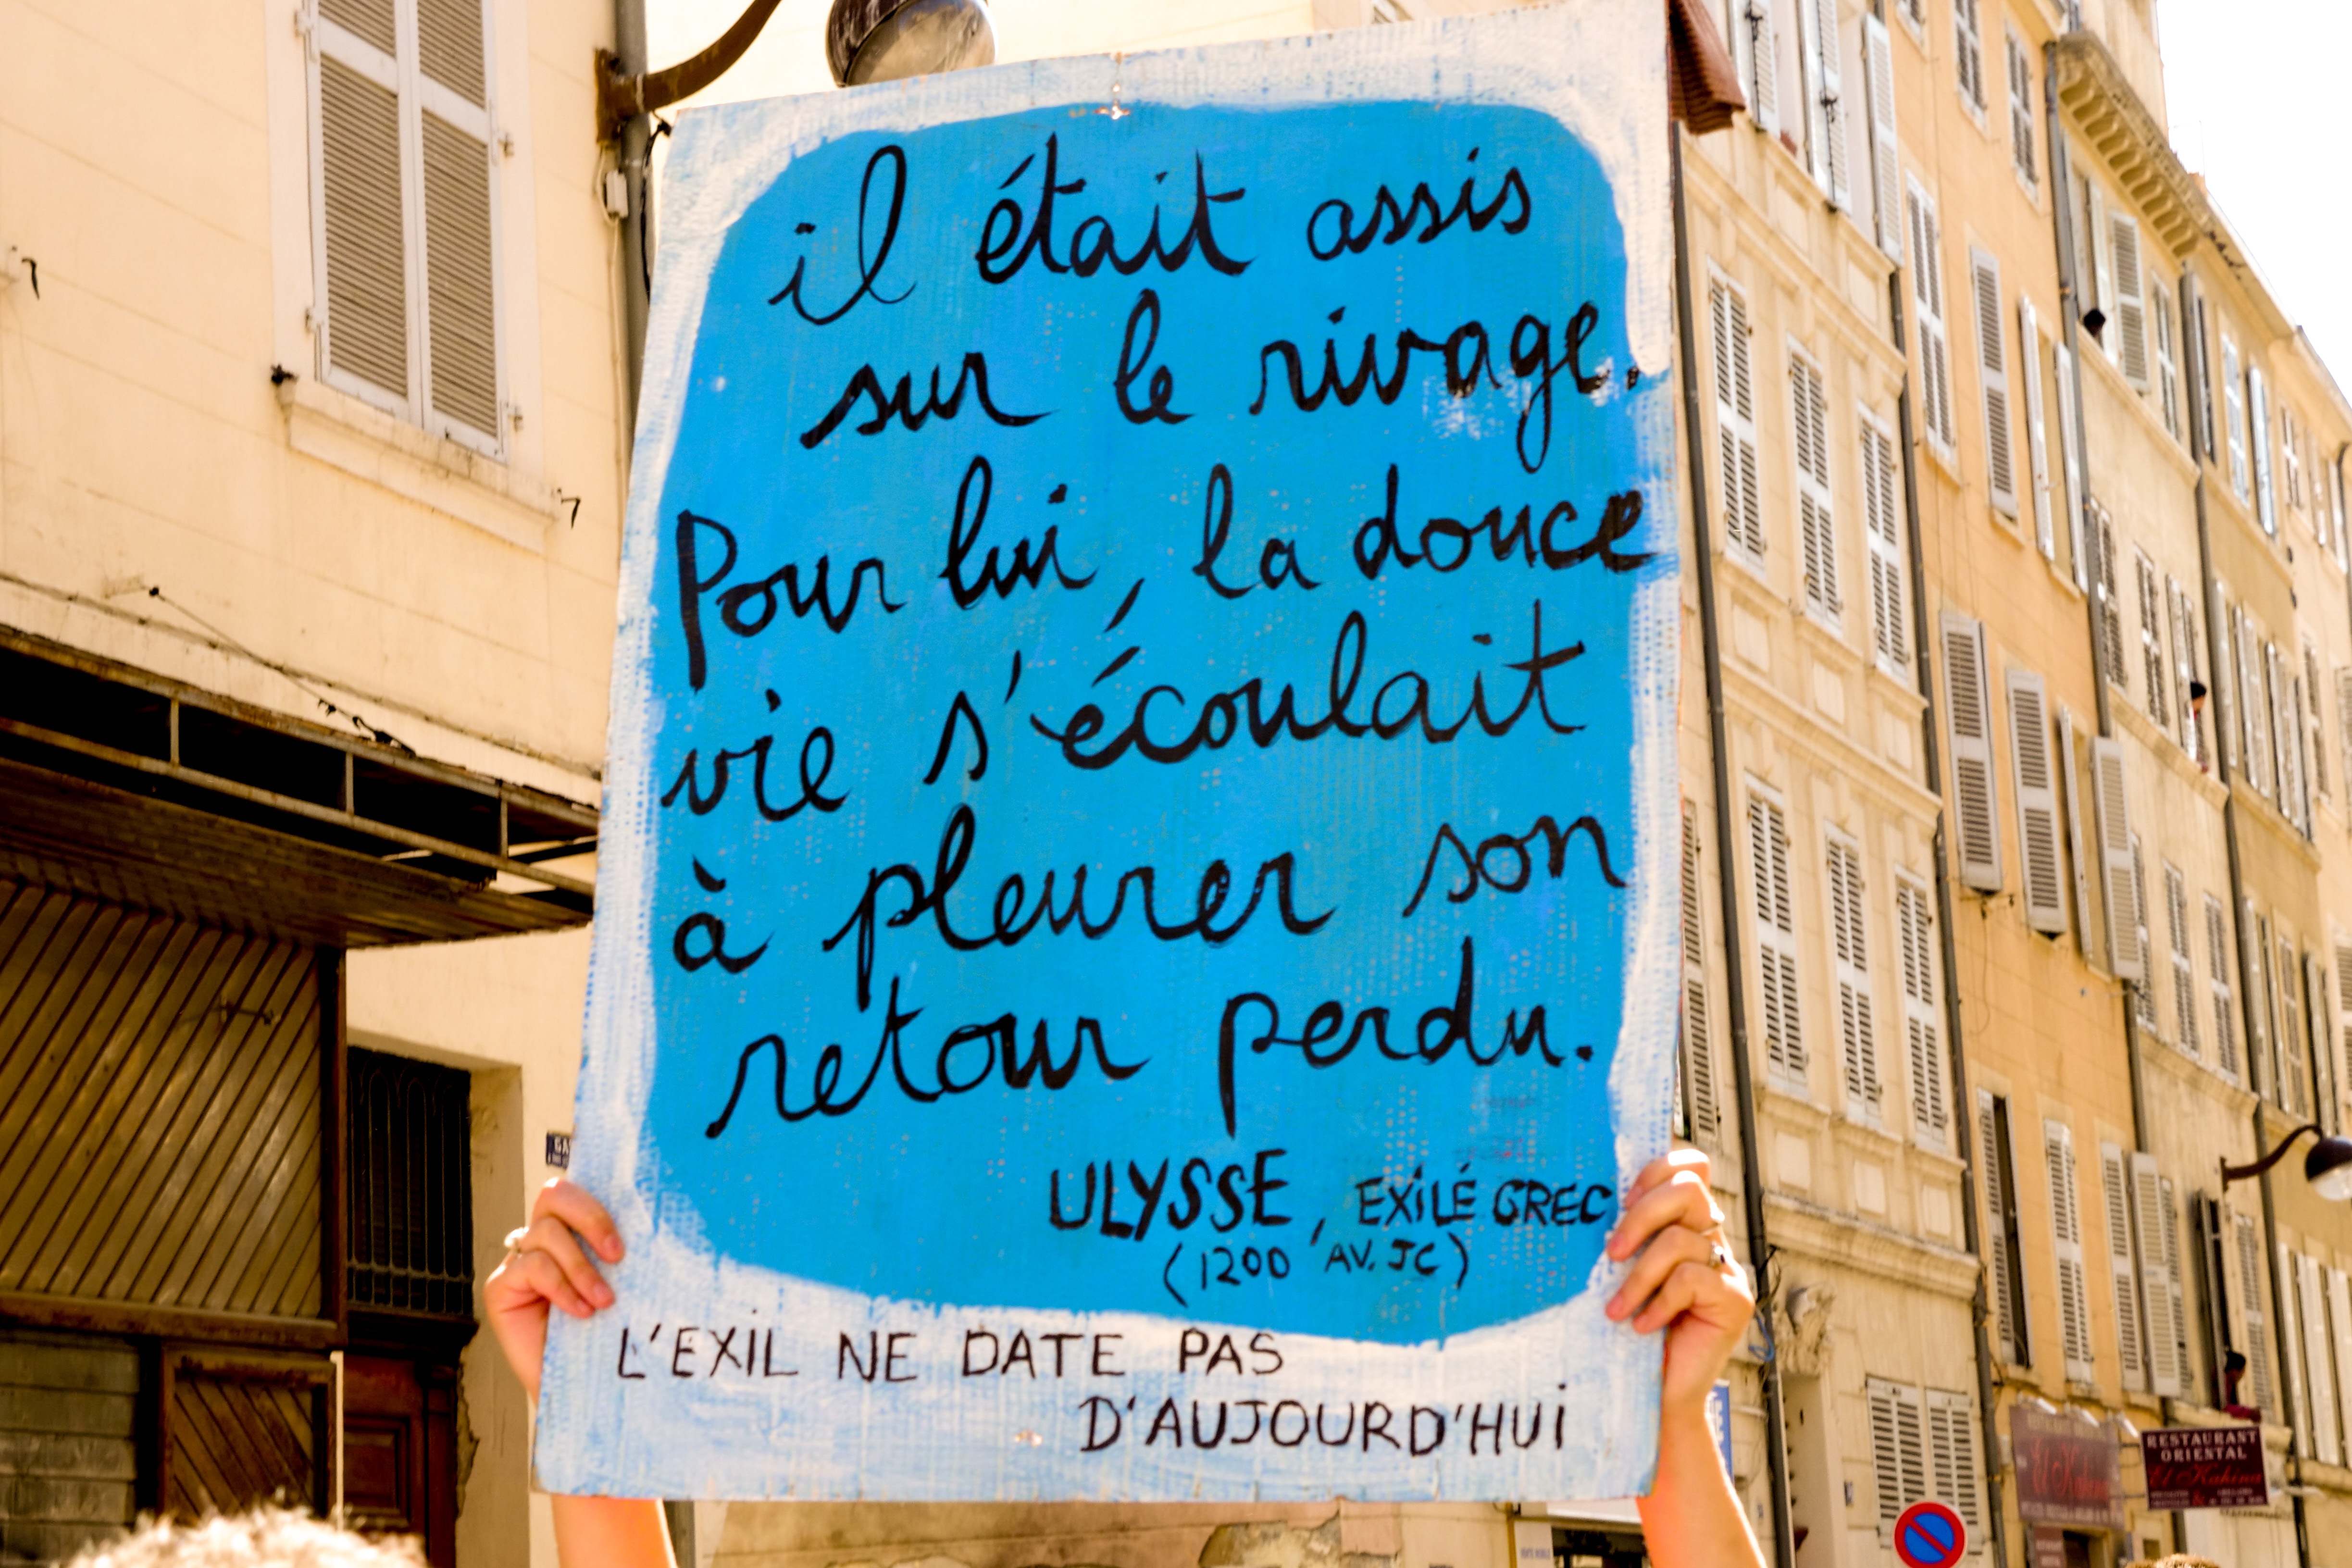 il était assis
sur le rivage.
Pour lui, la douce
vie s'écoulait
à pleurer son
retour perdu.
ULYSSE, EXILÉ GREC
(1200 AV. JC)
L'EXIL NE DATE PAS
D'AUJOURD'HUI
RESTAURANT
ORIENTAL
El Kahina